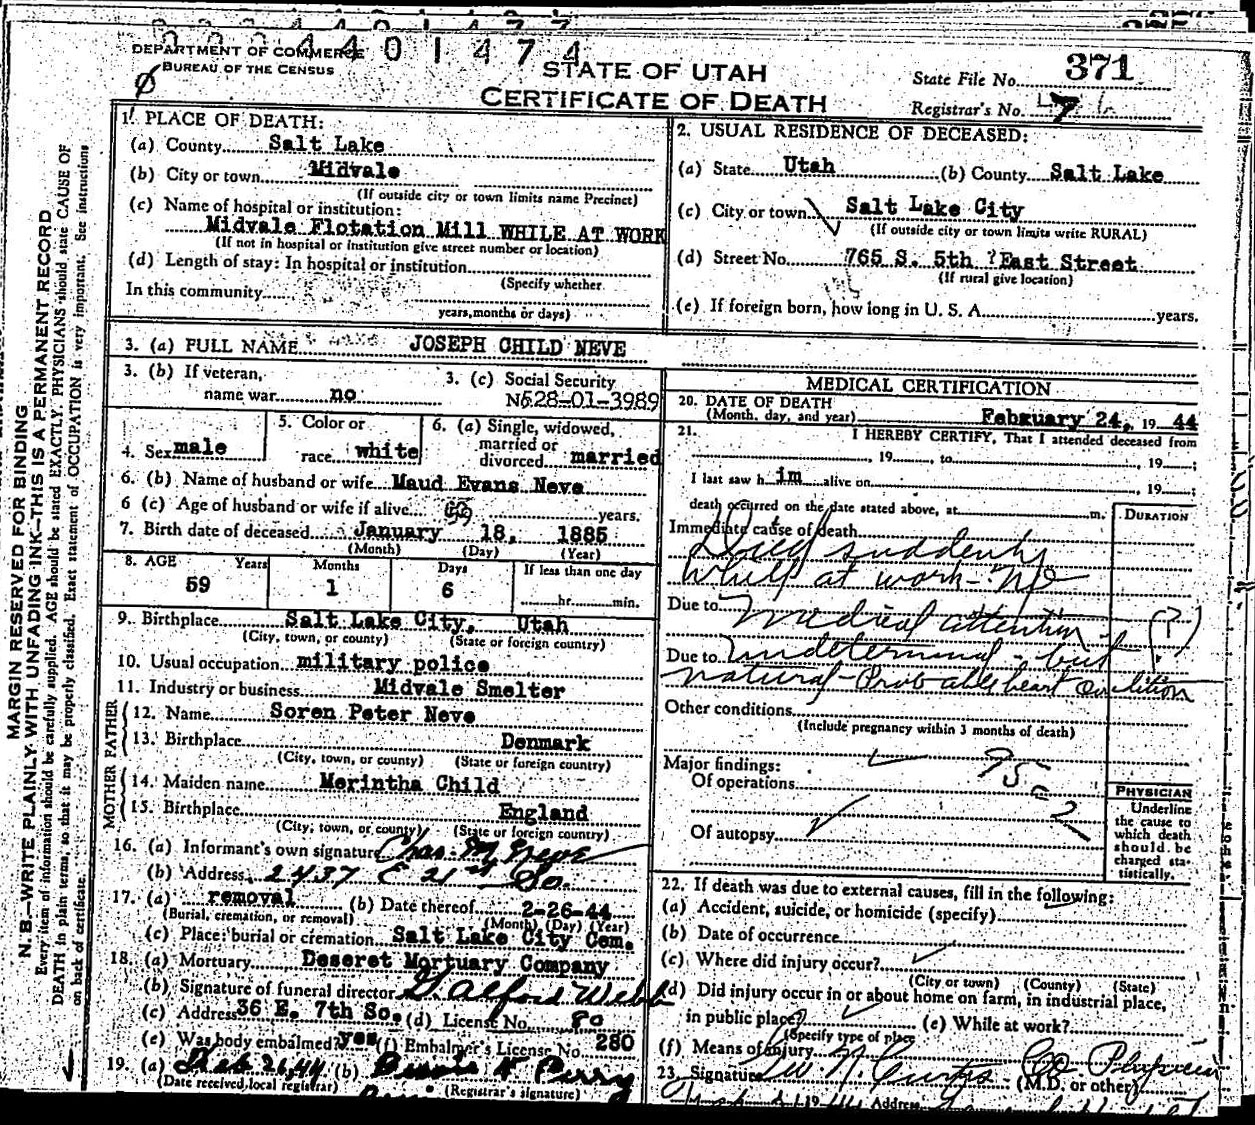 4 4 0 1 4 7 4
DEPARTMENT OF COMMERCE
BUREAU OF THE CENSUS
STATE OF UTAH
CERTIFICATE OF DEATH
State File No. 371
Registrar's No.
MARGIN RESERVED FOR BINDING
N. B.—WRITE PLAINLY WITH UNFADING INK—THIS IS A PERMANENT RECORD
Every item of information should be carefully supplied. AGE should be stated EXACTLY. PHYSICIANS should state CAUSE OF
DEATH in plain terms, so that it may be properly classified. Exact statement of OCCUPATION is very important. See instructions
on back of certificate.
1. PLACE OF DEATH:
(a) County Salt Lake
(b) City or town Midvale
(If outside city or town limits name Precinct)
(c) Name of hospital or institution:
Midvale Flotation Mill WHILE AT WORK
(If not in hospital or institution give street number or location)
(d) Length of stay: In hospital or institution
(Specify whether
In this community
years, months or days)
2. USUAL RESIDENCE OF DECEASED:
(a) State Utah (b) County Salt Lake
(c) City or town Salt Lake City
(If outside city or town limits write RURAL)
(d) Street No. 765 S. 5th ?East Street
(If rural give location)
(e) If foreign born, how long in U. S. A. years.
3. (a) FULL NAME JOSEPH CHILD NEVE
3. (b) If veteran,
name war no
3. (c) Social Security
No 528-01-3989
4. Sex male
5. Color or
race white
6. (a) Single, widowed,
married or
divorced married
6. (b) Name of husband or wife Maud Evans Neve
6 (c) Age of husband or wife if alive years.
7. Birth date of deceased January 18, 1885
(Month) (Day) (Year)
8. AGE Years Months Days If less than one day
59 1 6 hr. min.
9. Birthplace Salt Lake City, Utah
(City, town, or county) (State or foreign country)
10. Usual occupation military police
11. Industry or business Midvale Smelter
FATHER
12. Name Soren Peter Neve
13. Birthplace Denmark
(City, town, or county) (State or foreign country)
MOTHER
14. Maiden name Merintha Child
15. Birthplace England
(City, town, or county) (State or foreign country)
16. (a) Informant's own signature Chas. M. Neve
(b) Address 2437 E 21st So.
17. (a) removal (b) Date thereof 2-26-44
(Burial, cremation, or removal) (Month) (Day) (Year)
(c) Place: burial or cremation Salt Lake City Cem.
18. (a) Mortuary Deseret Mortuary Company
(b) Signature of funeral director G. Alford Webb
(c) Address 36 E. 7th So. (d) License No. 80
(e) Was body embalmed? yes (f) Embalmer's License No. 280
19. (a) Feb 26, 44 (b) Perry
(Date received local registrar) (Registrar's signature)
MEDICAL CERTIFICATION
20. DATE OF DEATH
(Month, day, and year) February 24, 19 44
21. I HEREBY CERTIFY, That I attended deceased from
, 19 , to , 19 ;
I last saw h im alive on , 19 ;
death occurred on the date stated above, at m.
DURATION
Immediate cause of death
Died suddenly
while at work - No
Due to medical attention - (?)
Due to undetermined - but
natural - Probably heart condition
Other conditions
(Include pregnancy within 3 months of death)
Major findings:
Of operations
Of autopsy
PHYSICIAN
Underline
the cause to
which death
should be
charged sta-
tistically.
22. If death was due to external causes, fill in the following:
(a) Accident, suicide, or homicide (specify)
(b) Date of occurrence
(c) Where did injury occur?
(City or town) (County) (State)
(d) Did injury occur in or about home on farm, in industrial place,
in public place? (e) While at work?
(Specify type of place)
(f) Means of injury
23. Signature W. N. Curtis Co Physician (M.D. or other)
Address